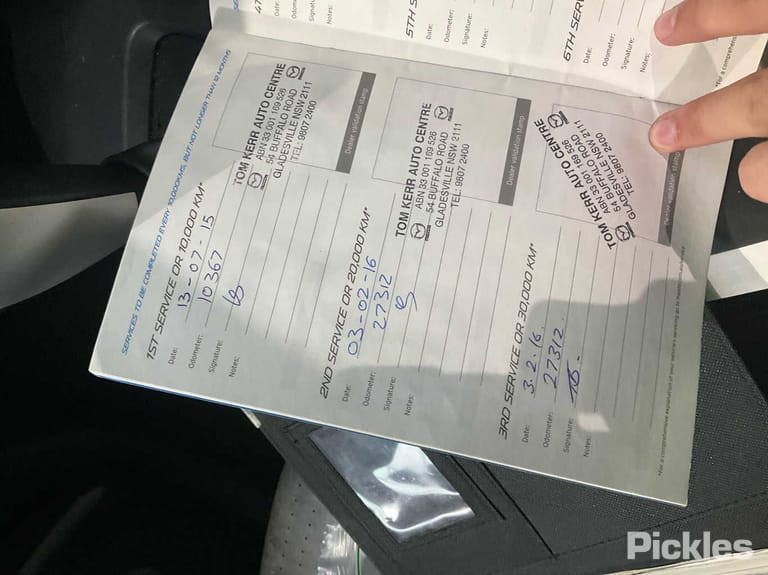 SERVICES TO BE COMPLETED EVERY 10,000KMS, BUT NOT LONGER THAN 12 MONTHS
1ST SERVICE OR 10,000 KM*
Date: 13-07-15
Odometer: 10367
Signature:
Notes:
TOM KERR AUTO CENTRE
ABN 33 001 169 526
54 BUFFALO ROAD
GLADESVILLE NSW 2111
TEL: 9607 2400
Dealer validation stamp
2ND SERVICE OR 20,000 KM*
Date: 03-02-16
Odometer: 27312
Signature:
Notes:
TOM KERR AUTO CENTRE
ABN 33 001 169 526
54 BUFFALO ROAD
GLADESVILLE NSW 2111
TEL: 9607 2400
Dealer validation stamp
3RD SERVICE OR 30,000 KM*
Date: 3.2.16.
Odometer: 27312.
Signature:
Notes:
TOM KERR AUTO CENTRE
ABN 33 001 169 526
54 BUFFALO ROAD
GLADESVILLE NSW 2111
TEL: 9607 2400
Dealer validation stamp
*For a comprehensive explanation of your vehicle's servicing
Odometer:
Signature:
Notes:
5TH SER
Date:
Odometer:
Signature:
Notes:
6TH SERV
Date:
Odometer:
Signature:
Notes:
*For a comprehens
Pickles